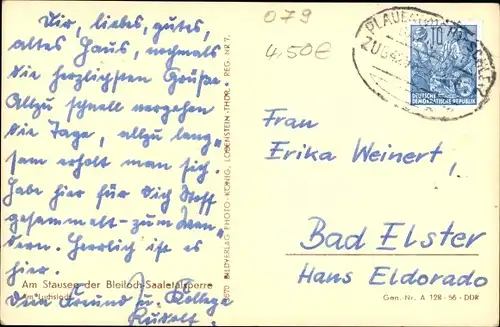 Dir, liebes, gutes,
altes Haus, nochmals
die herzlichsten Grüße.
Allzu schnell vergehen
die Tage, allzu lang-
sam erholt man sich.
Habe hier für Dich Stoff
gesammelt - zum Wan-
dern. Herrlich ist es
hier.
Am Stausee der Bleiloch-Saaletalsperre
Dein Freund u. Kollege
Rudolf.
BILDVERLAG PHOTO-KÖNIG, LOBENSTEIN-THÜR. REG. NR 7.
079
4,50€
PLAUEN
ZUG
10
DEUTSCHE
DEMOKRATISCHE REPUBLIK
Frau
Erika Weinert,
Bad Elster
Haus Eldorado
Gen.-Nr. A 128 - 56 - DDR